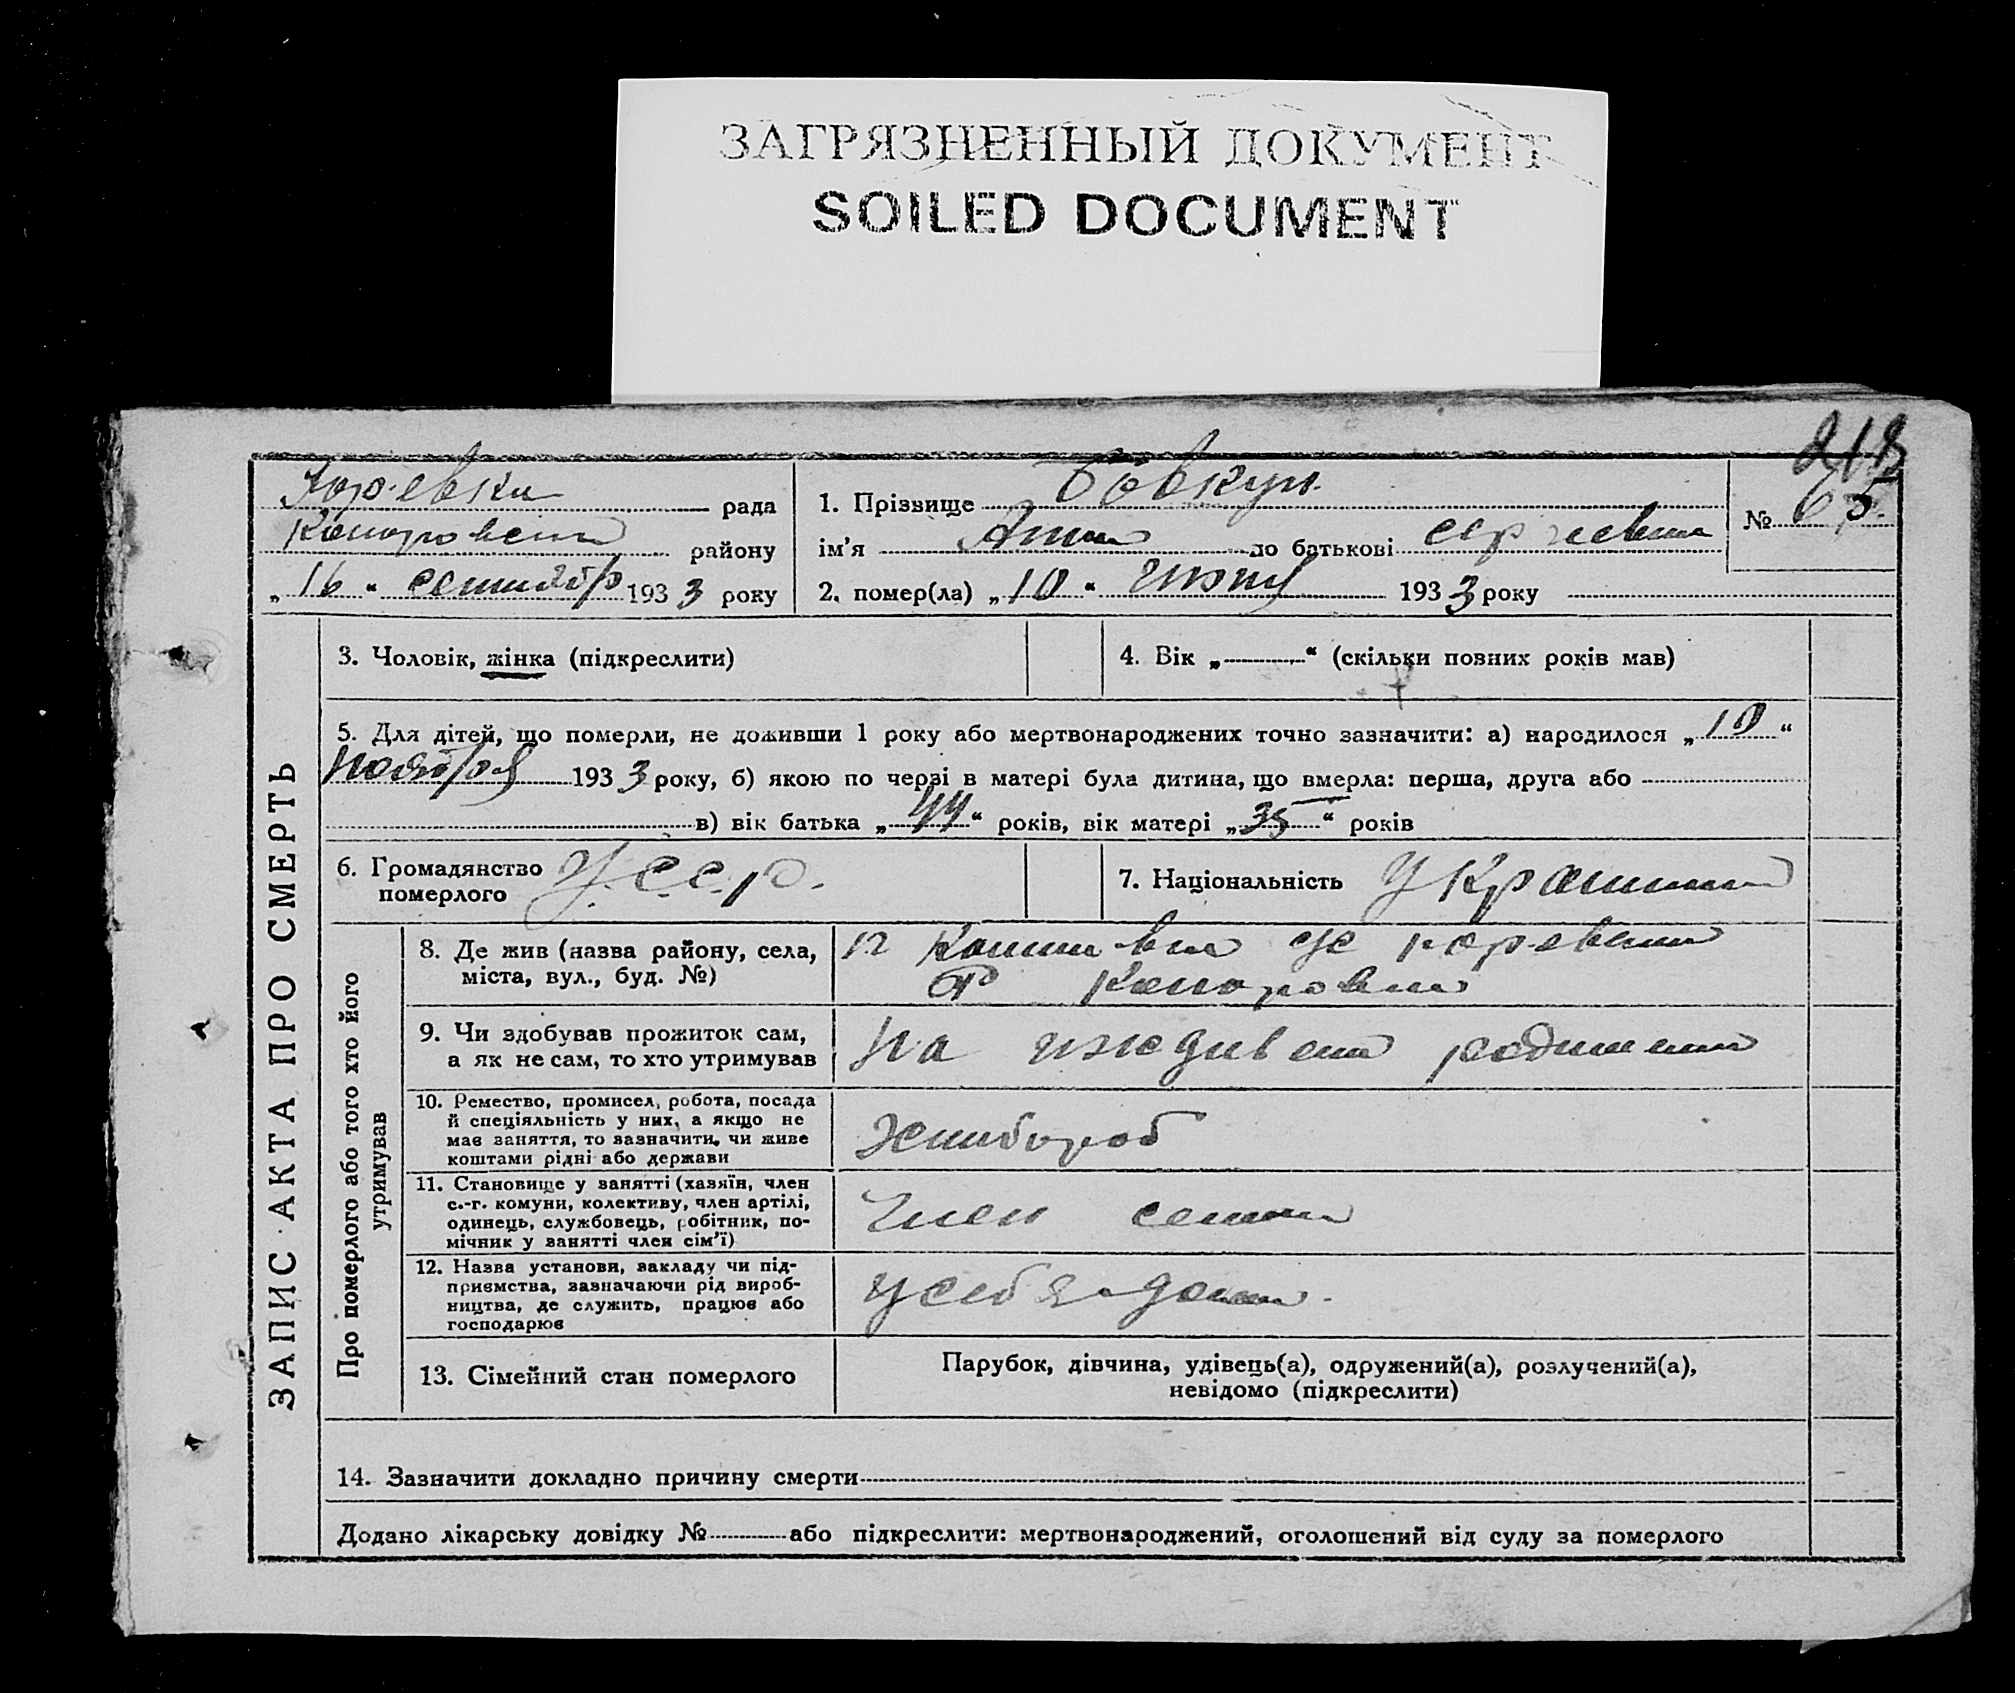 ЗАГРЯЗНЕННЫЙ ДОКУМЕНТ
SOILED DOCUMENT
218
рада
району
„16“ 1933 року
1. Прізвище Бовкун
ім'я Анна по батькові
№ 65
2. помер(ла) „10“ 1933 року
ЗАПИС АКТА ПРО СМЕРТЬ
3. Чоловік, жінка (підкреслити)
4. Вік „ “ (скільки повних років мав)
5. Для дітей, що померли, не доживши 1 року або мертвонароджених точно зазначити: а) народилося „10“
Ноября 1933 року, б) якою по черзі в матері була дитина, що вмерла: перша, друга або
в) вік батька „44“ років, вік матері „35“ років
6. Громадянство
померлого
У.С.С.Р.
7. Національність
Про померлого або того хто його
утримував
8. Де жив (назва району, села,
міста, вул., буд. №)
9. Чи здобував прожиток сам,
а як не сам, то хто утримував
На
10. Ремество, промисел, робота, посада
й спеціяльність у них, а якщо не
має заняття, то зазначити, чи живе
коштами рідні або держави
Хлибороб
11. Становище у занятті (хазяїн, член
с.-г. комуни, колективу, член артілі,
одинець, службовець, робітник, по-
мічник у занятті член сім'ї)
Член семьи
12. Назва установи, закладу чи під-
приємства, зазначаючи рід вироб-
ництва, де служить, працює або
господарює
у себя дома
13. Сімейний стан померлого
Парубок, дівчина, удівець(а), одружений(а), розлучений(а),
невідомо (підкреслити)
14. Зазначити докладно причину смерти
Додано лікарську довідку № або підкреслити: мертвонароджений, оголошений від суду за померлого